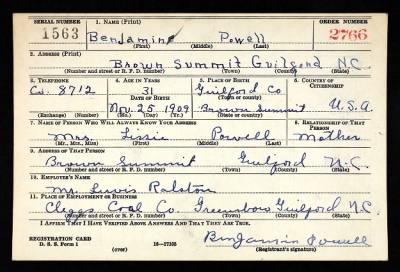 SERIAL NUMBER 1. NAME (Print) ORDER NUMBER
1563 Benjamine Powell 2766
(First) (Middle) (Last)
2. ADDRESS (Print)
Brown Summit Guilford N.C.
(Number and street or R. F. D. number) (Town) (County) (State)
3. TELEPHONE 4. AGE IN YEARS 5. PLACE OF BIRTH 6. COUNTRY OF CITIZENSHIP
Co. 8712 31 Guilford Co
DATE OF BIRTH (Town or county)
Nov. 25 1909 Brown Summit U.S.A
(Exchange) (Number) (Mo.) (Day) (Yr.) (State or country)
7. NAME OF PERSON WHO WILL ALWAYS KNOW YOUR ADDRESS 8. RELATIONSHIP OF THAT PERSON
Mrs. Lissie Powell Mother
(Mr., Mrs., Miss) (First) (Middle) (Last)
9. ADDRESS OF THAT PERSON
Brown Summit Guilford N.C.
(Number and street or R. F. D. number) (Town) (County) (State)
10. EMPLOYER'S NAME
Mr. Luvis Ralston
11. PLACE OF EMPLOYMENT OR BUSINESS
Cleggs Coal Co. Greensboro Guilford N.C.
(Number and street or R. F. D. number) (Town) (County) (State)
I AFFIRM THAT I HAVE VERIFIED ABOVE ANSWERS AND THAT THEY ARE TRUE.
REGISTRATION CARD
D. S. S. Form 1 (over) 16—17105 Benjamin Powell
(Registrant's signature)